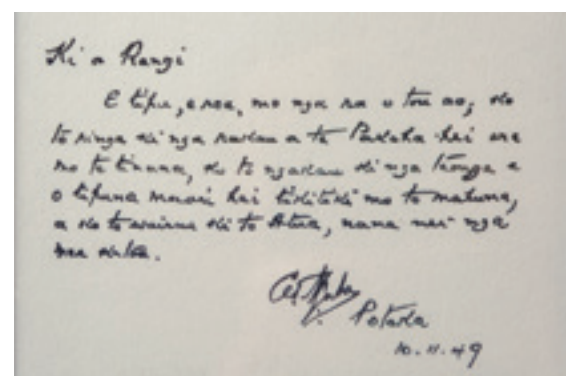 Ki a Rangi
E tipu, e rea, mo nga ra o tou ao; ko
to ringa ki nga rakau a te Pakeha hei ara
mo te tinana, ko to ngakau ki nga taonga a
o tipuna maori hei tikitiki mo to mahuna,
a ko to wairua ki te Atua, nana nei nga
mea katoa.
Potaka
10.11.49